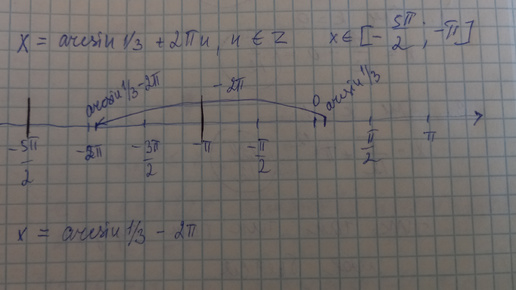 x = arcsin 1/3 + 2πn, n ∈ Z x ∈ [-5π/2; -π]
arcsin 1/3 - 2π - 2π 0 arcsin 1/3
-5π/2 -2π -3π/2 -π -π/2 π/2 π
x = arcsin 1/3 - 2π